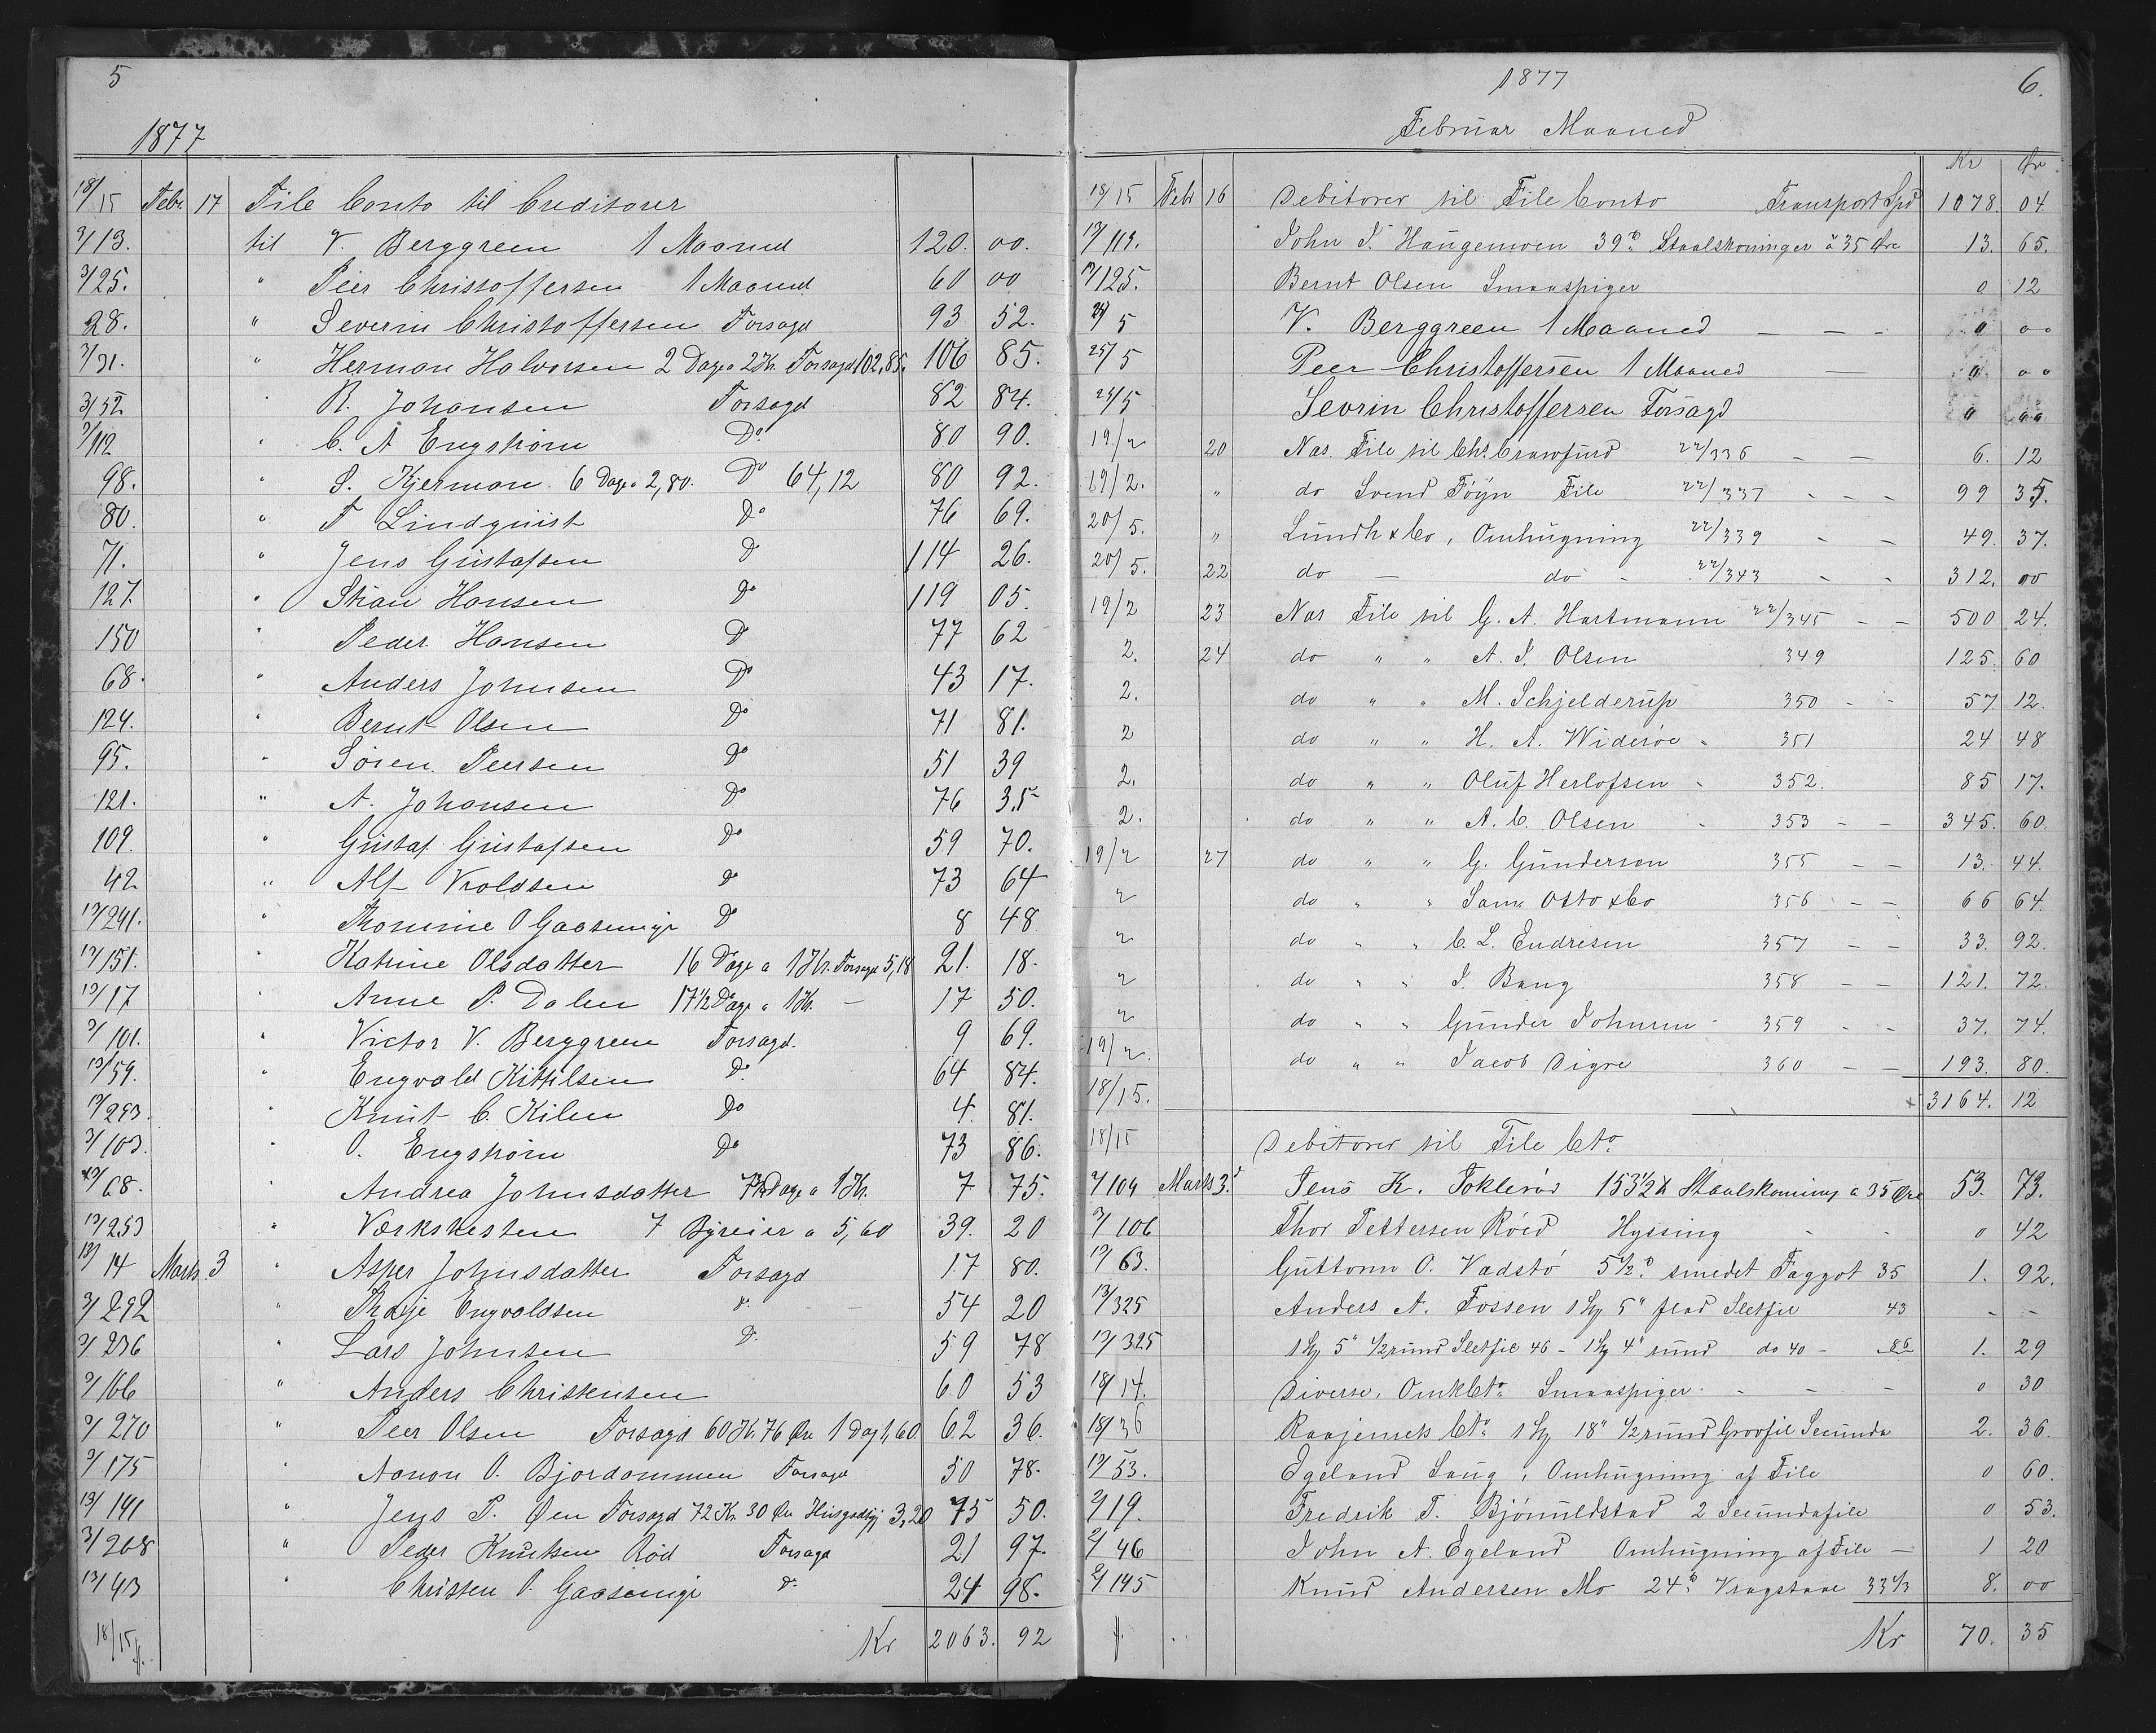 5
1877
18/15 Febr. 17 File Conto til Creditorer
3/13. til V. Berggreen 1 Maaned 120. 00.
3/25. " Peer Christoffersen 1 Maaned 60 00
28. " Severin Christoffersen Forsagd 93 52.
3/31. " Herman Halvorsen 2 Dage a 2 Kr. Forsagd 102,85. 106 85.
3/52 " R. Johansen Forsagd 82 84.
3/112 " C. A Engstrøm Do. 80 90.
98. " S. Kjerman. 6 Dage a 2,80. Do 64,12 80 92.
80. " F Lindquist Do 76 69.
71. " Jens Gustafsen Do 114 26.
127. " Hansen Do 119 05.
150 " Peder Hansen Do 77 62
68. " Anders Johnsen Do 43 17.
124. " Bernt Olsen Do 71 81.
95. " Søren Peersen Do 51 39
121. " A. Johansen Do 76 35
109. " Gustaf Gustafsen Do 59 70.
42 " Alf Vroldsen Do 73 64
13/241. " Thomine O Gaasemyr Do 8 48
13/151. " Katrine Olsdatter 16 Dage a 1 Kr. Forsagd 5,18 21. 18.
13/17 " Anne P. Dalen 17 1/2 Dage a 1 Kr. — 17 50.
3/101. " Victor V. Berggreen Forsagd. 9 69.
13/59. " Engvald Kittilsen Do 64 84.
13/293. " Knut C. Kilen Do 4. 81.
3/103. " O. Engstrøm Do 73 86.
68. " Andrea Johnsdatter 7 3/4 Dage a 1 Kr. 7 75.
13/253 " Værkshesten 7 Byreier a 5,60 39. 20
13/14 Marts 3 " Asper Johnsdatter Forsagd 17 80.
3/292 " Engvaldsen Do 54 20
3/236 " Lars Johnsen Do 59 78
3/66 " Anders Christensen 60 53
3/270 " Peer Olsen Forsagd 60 Kr. 76 Øre 1 Dag 1,60. 62 36.
3/175 " Aanon O. Bjordammen Forsagd 50 78.
13/141 " Jens P. Øen Forsagd 72 Kr. 30 Øre 3,20 75 50.
3/208 " Peder Knutsen Rød Forsagd 21 97.
13/43 " Christen O. Gaasemyr Do 24 98.
18/15 Kr 2063. 92
1877 6.
Februar Maaned
Kr Ør
18/15 Feb 16 Debitorer til File Conto Transport Spd 1078. 04.
13/119. John T. Haugemoen 39 Staalskoninger à 35 Øre 13. 65.
13/125. Bernt Olsen Smaaspiger 0 12
5 V. Berggreen 1 Maaned — — — 0 00
25/5 Peer Christoffersen 1 Maaned — 0 00
25/5 Sevrin Christoffersen Forsagd 0 00
19/2 20 Nas. File til Chr. Crawfurd 22/336 — — 6. 12
19/2. " do Svend Föyn File 22/337 - - - 99 35.
20/5. " Lundh & Co, Omhugning 22/339 - - 49. 37.
20/5. 22 do — do - 22/343 - - 312. 00
19/2 23 Nas File til G. A. Hartmann 22/345 - - 500 24.
2. 24 do " " A. S. Olsen 349 125. 60
2. do " " M. Schjelderup 350 - - 57. 12.
2 do " " H. A. Wideröe " 351 24 48
2. do " " Oluf Herlofsen - 352. 85 17.
2. do " " A. C. Olsen - 353 - - 345. 60.
19/2 27 do " " G. Gunderson 355 - - 13. 44.
2 do " " Sam Otto & Co 356 - - 66 64.
2 do " " C. L. Endresen 357 - - 33. 92.
2 do " " J. Bang 358 - - 121. 72.
2 do " " Gunder Johnsen - 359 - - 37. 74.
19/2. do " " Jacob Digre 360 - - 193. 80.
18/15. 3164. 12
18/15 Debitorer til File Cto
3/104 Marts 3. Jens K. Toklerød 153 1/2 Staalskoning a 35 Øre 53. 73.
3/106 Thor Pettersen Röed Hyssing - - 0 42
13/63. Guttorm O. Vadstö 5 1/2 smedet Faggot 35 1. 92.
13/325 Anders A. Fossen 1 Stk 5" flad Sletfil 43 - -
13/325 1 Stk 5" 1/2 rund Sletfil 46 - 1 Stk 4" rund do 40 - 86 1. 29
18/14. Diverse. Omk Cto Smaaspiger. - - - 0 30
18/36 Raajernets Cto 1 Stk 18" 1/2 rund Grovfil Secunda 2. 36.
13/53. Egeland Saug, Omhugning af File 0 60.
2/19. Fredrik T. Bjönuldstad 2 Secundafile 0 53.
2/46 John A. Egeland Omhugning af File — 1 20
2/145 Knud Andersen Mo 24 Vragstaal 33 1/3 8. 00
Kr 70. 35